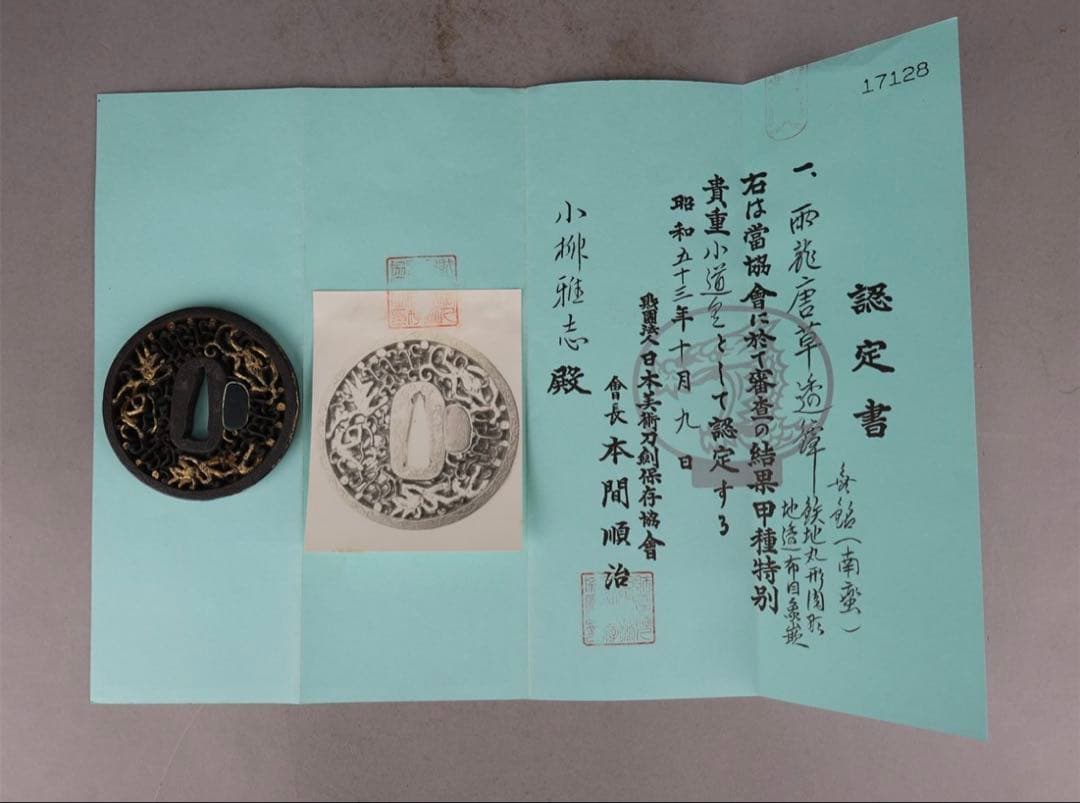 17128
認定書
一、雨龍唐草透鐔
無銘(南蛮)
鉄地丸形肉彫
地透布目象嵌
右は當協會に於て審査の結果甲種特別
貴重小道具として認定する
昭和五十三年十月九日
財團法人日本美術刀劍保存協會
會長本間順治
小柳雅志殿